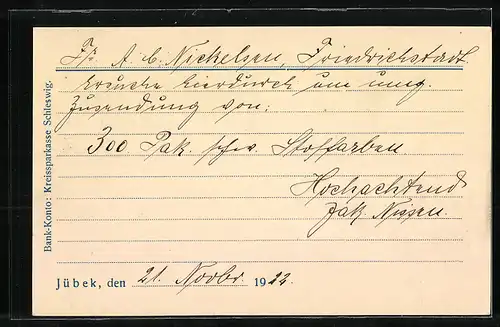 Fr. A. C. Nickelsen, Friedrichstadt
Ersuche hierdurch um umg.
Zusendung von:
300 Pak. schw. Stoffarben
Hochachtend
Jak. Nissen.
Jübek, den 21. Novbr. 1922.
Bank-Konto: Kreissparkasse Schleswig.